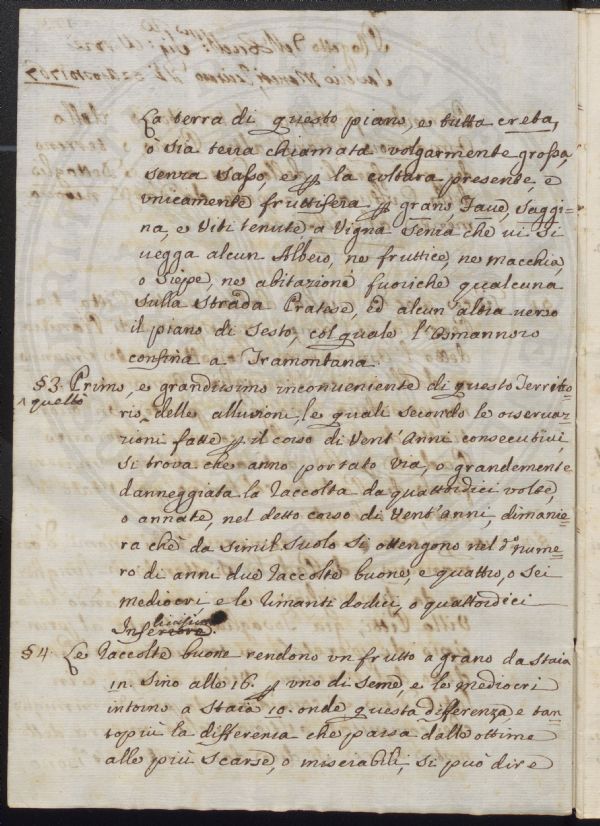 La terra di questo piano, e tutta creta,
o sia terra chiamata volgarmente grossa,
senza sasso, e p la coltura presente, e
unicamente fruttifera p grano, Faue, saggi=
na, e Viti tenute, a Vigna senza che vi si
uegga alcun Albero, ne fruttice, ne macchia,
o siepe, ne abitazione fuoriche qualcuna
sulla strada Pratese, ed alcun' altra verso
il piano di Sesto, col quale l'Osmannoro
confina a Tramontana.
§3. Primo, e grandissimo inconueniente di questo Territo=
^ quello
rio ^ delle alluuioni, le quali secondo le osseruaz=
zioni fatte p il corso di Vent' Anni consecutiui,
si trova che anno portato via, o grandemente
danneggiata la Raccolta da quattordici volte,
o annate, nel detto corso di Vent'anni, dimanie=
ra che da simil suolo si ottengono nel do nume=
ro di anni due Raccolte buone, e quattro, o sei
mediocri, e le rimanti dodici, o quattordici
Infe
§4. Le Raccolte buone rendono vn frutto a grano da staia
in. sino alle 16. p vno di seme, e le mediocri
intorno a staia 10. onde questa differenza, e tan=
topiù la differenza che passa dalle ottime
alle più scarse, o miserabili, si può dire